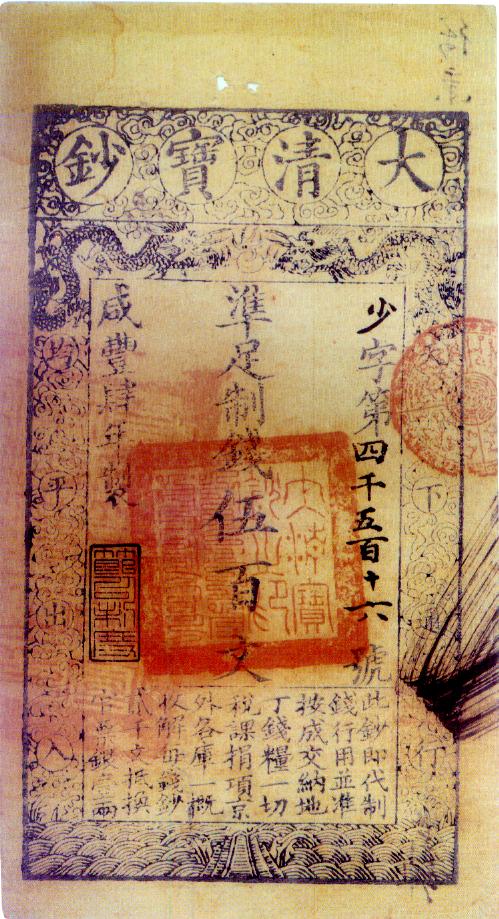 大清寶鈔
天下通行
少字第四千五百十六號
準足制錢伍百文
咸豐肆年製
均平出入
此鈔即代制
錢行用並准
按成交納地
丁錢糧一切
稅課捐項京
外各庫一概
收解每錢鈔
貳千文抵換
官票銀壹兩